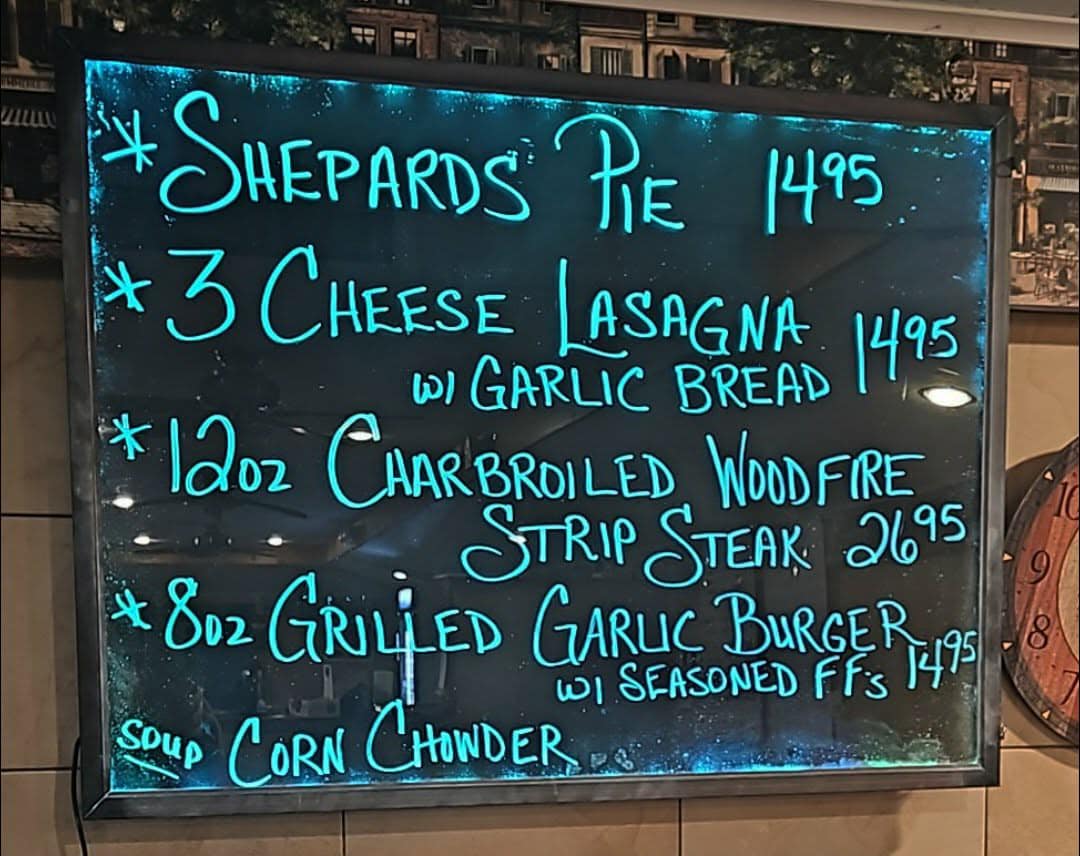 * SHEPARDS PIE 1495
* 3 CHEESE LASAGNA 1495
w/ GARLIC BREAD
* 12oz CHARBROILED WOODFIRE
STRIP STEAK 2695
* 8oz GRILLED GARLIC BURGER 1495
w/ SEASONED FFs
SOUP CORN CHOWDER
10
9
8
7